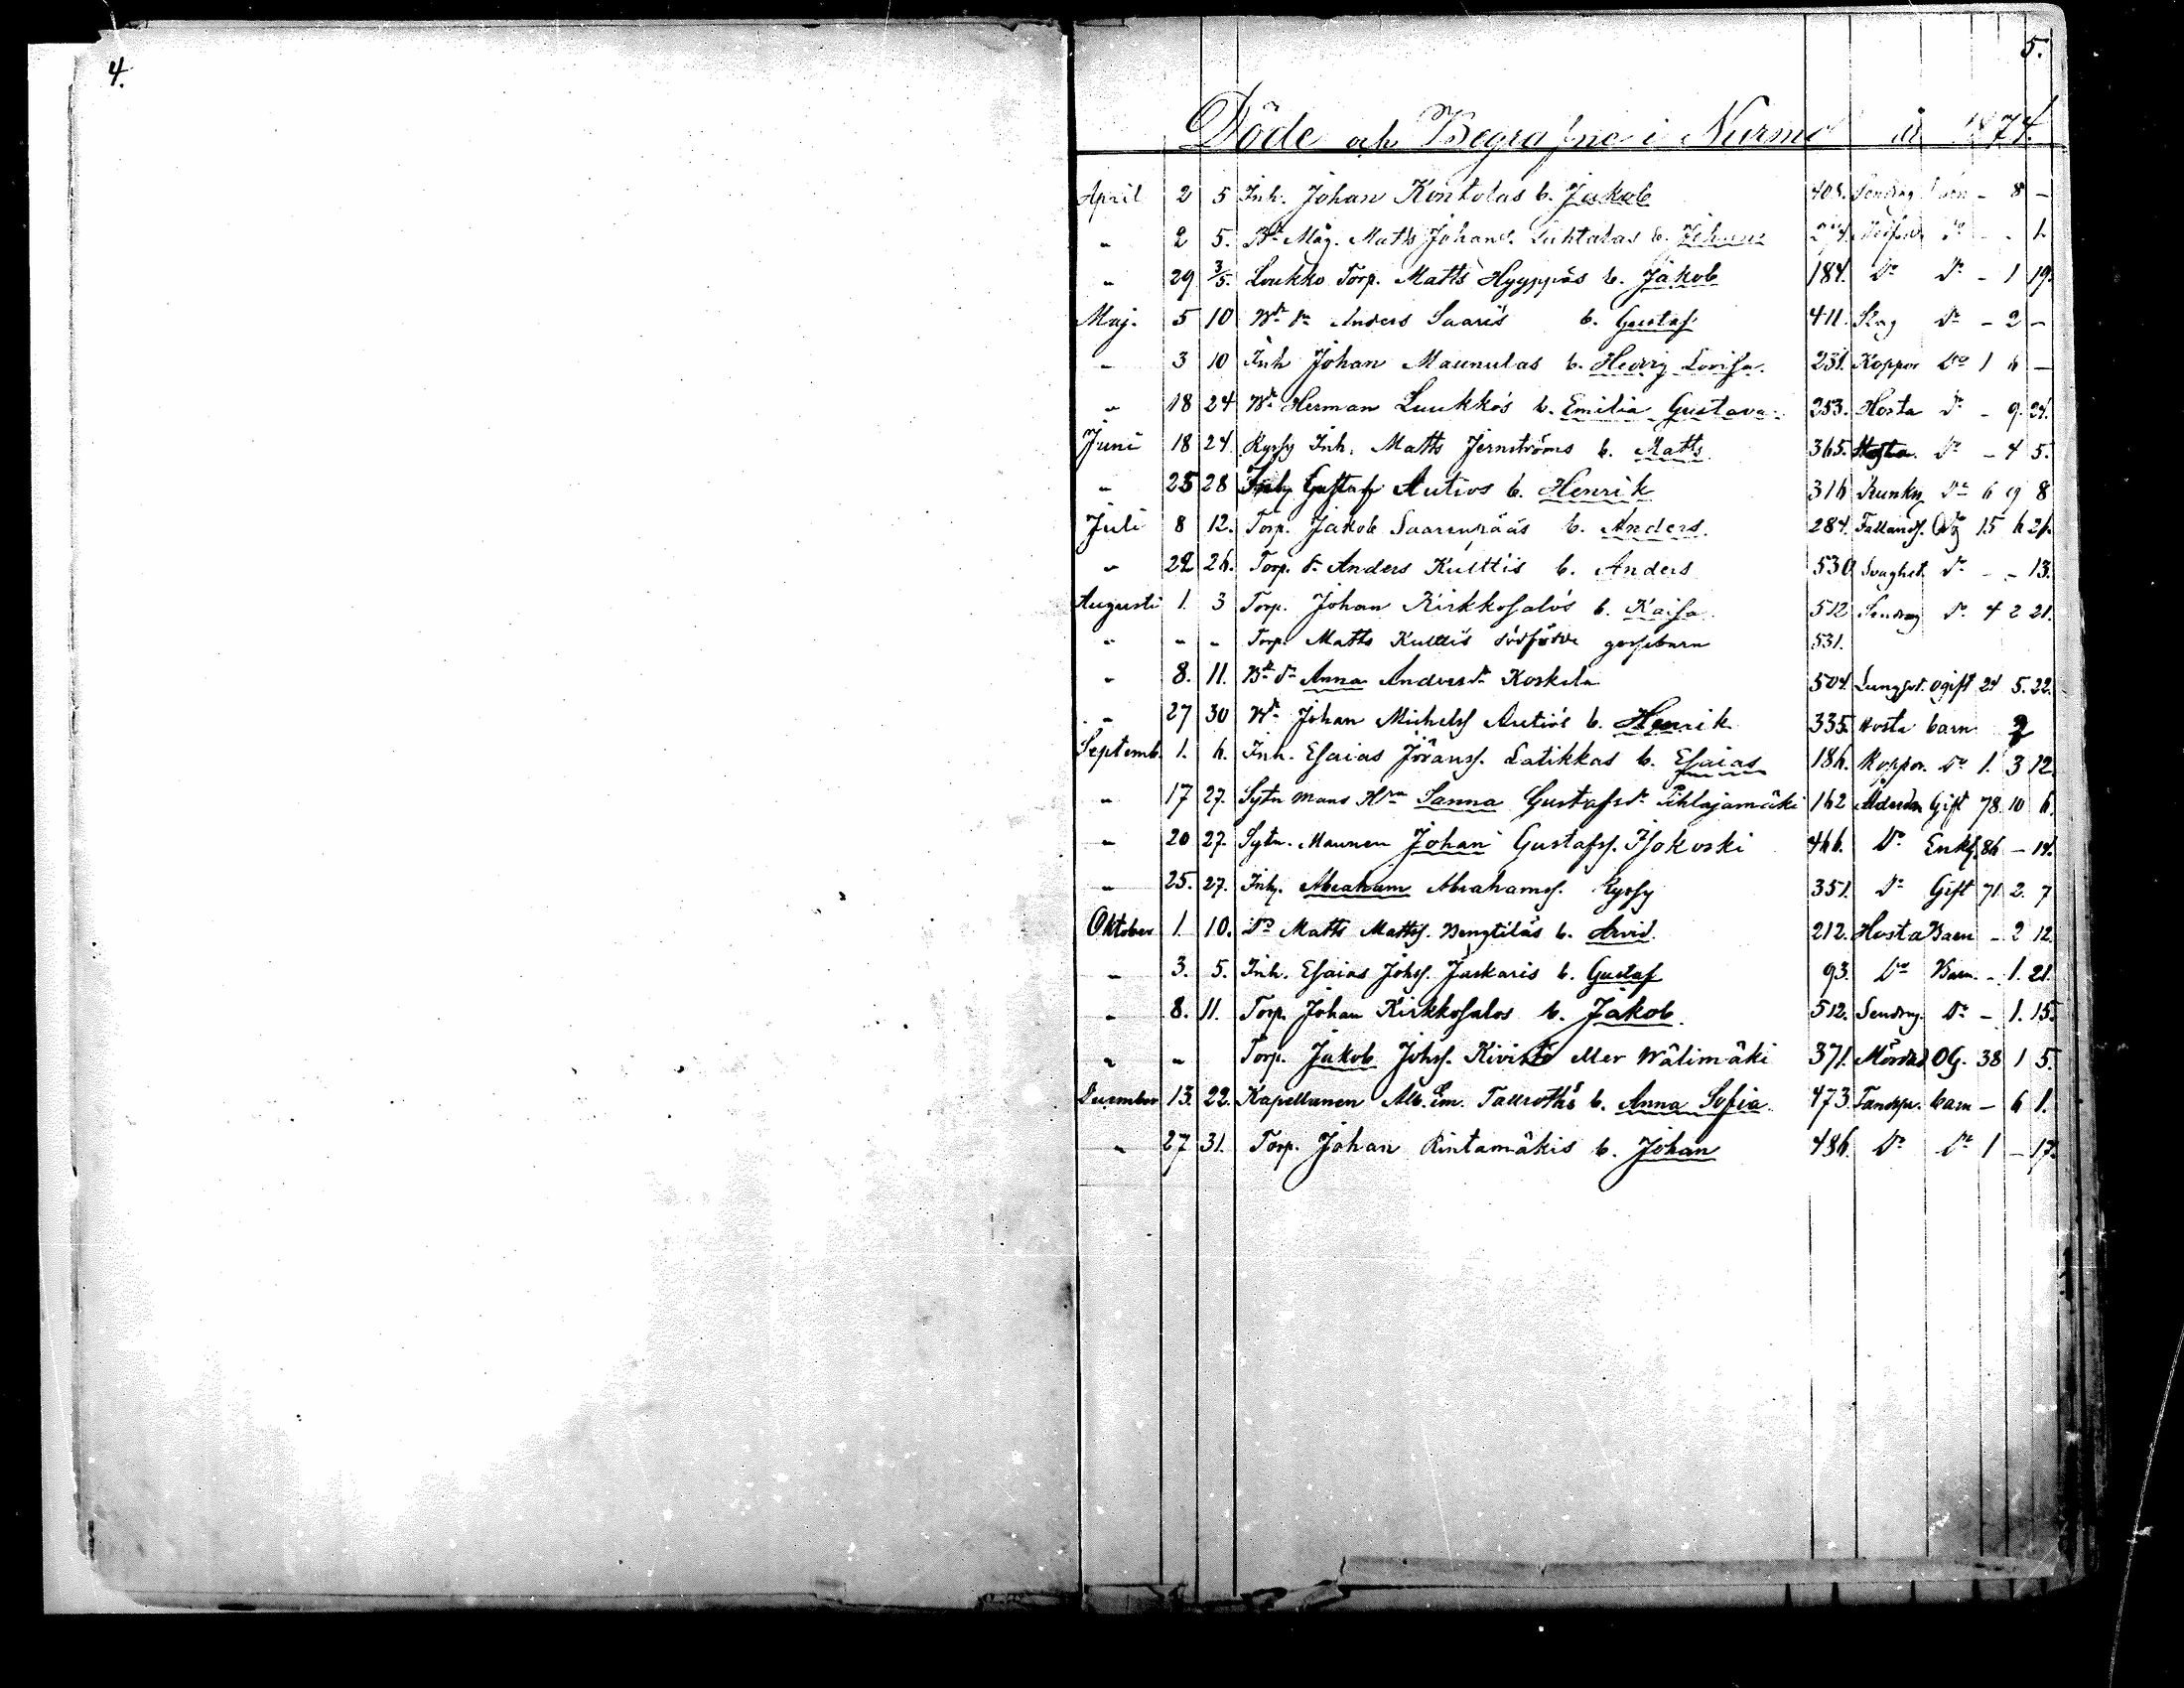 4.
5.
Döde och Begrafne i Nurmo år 1874.
April 2 5 Inh. Johan Kontolas b. Jakob 408. - 8 -
" 2 5. Måg. Matts Johans. b. Johan Dº - - 1.
" 29 3/5. Loukko Torp. Matts Hyyppäs b. Jakob 184. Dº Dº - 1 19.
Maj. 5 10 Anders Saaris b. Gustaf 411. Slag Dº - 2 -
" 3 10 Inh Johan Maunulas b. Hedvig Lovisa. 231. Koppor Dº 1 6 -
" 18 24 Herman Luukkos b. Emilia Gustava. 253. Hosta Dº - 9. 24.
Juni 18 24. Kyrsy Inh. Matts Jernströms b. Matts. 365. Hosta. Dº - 4 5.
" 25 28 Gustaf Autios b. Henrik 316 Dº 6 9 8
Juli 8 12. Torp. Jakob Saarenpääs b. Anders. 284. Fallands. 15 6 21.
" 22 26. Torp. Anders Kulttis b. Anders 530 Svaghet. Dº - - 13.
Augusti 1. 3 Torp. Johan Kirkkosalos b. Kaisa. 512 Sendrag Dº 4 2 21.
" " " Torp. Matts Kulttis dödfödde gossebarn 531.
" 8. 11. Anna Andersdr Koskela 504. Lungsot. Ogift 24 5. 22.
" 27 30 Johan Michelss Autios b. Henrik 335. Hosta barn 2
Septemb. 1. 6. Inh. Esaias Jöranss. Latikkas b. Esaias 186. Koppor. Dº 1. 3 12.
" 17 27. Sytn mans Hru Sanna Gustafsdr Pihlajamäki 162 Ålderdom Gift 78. 10 6.
" 20 27. Sytn. Mannen Johan Gustafss. Isokoski 466. Dº Enkl. 86 - 14.
" 25. 27. Inh. Abraham Abrahamss. Kyrsy 351. Dº Gift 71. 2. 7
Oktober 1. 10. Dº Matts Mattss. Bengtiläs b. Arvid. 212. Hosta Barn - 2 12.
" 3. 5. Inh. Esaias Johss. Juskaris b. Gustaf 93. Dº Barn. - 1. 21.
" 8. 11. Torp. Johan Kirkkosalos b. Jakob. 512. Sendrag. Dº - 1. 15.
" " Torp. Jakob Johss. Kivistö eller Wälimäki 371. Mördad OG. 38 1 5.
December 13. 22. Kapellanen Alb. Em. Tallroths b. Anna Sofia. 473. Tandspr. barn - 6 1.
" 27 31. Torp. Johan Rintamäkis b. Johan 486. Dº Dº 1 - 17.